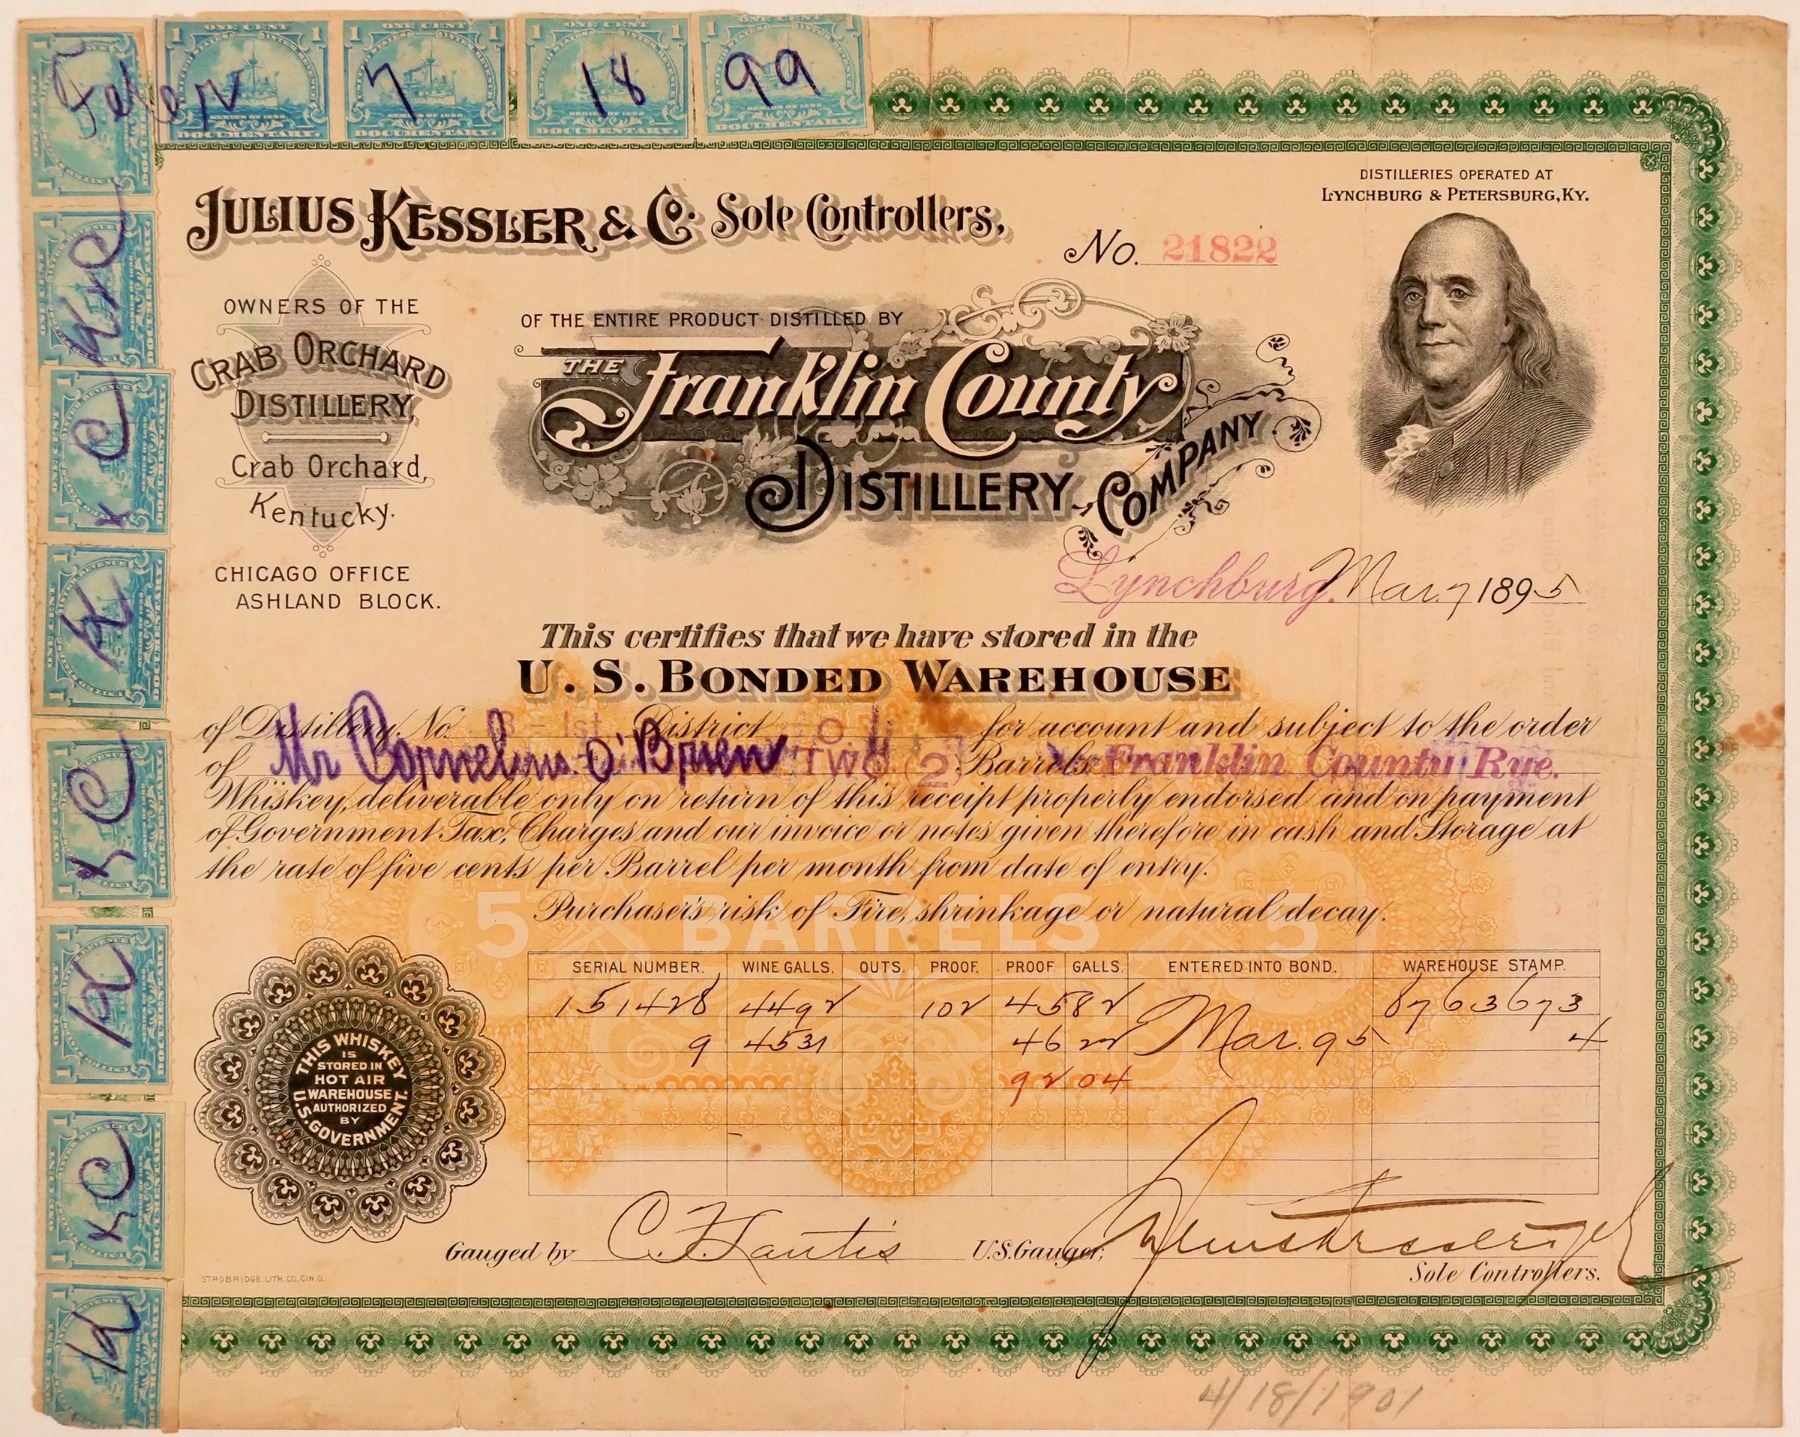 DISTILLERIES OPERATED AT
LYNCHBURG & PETERSBURG, KY.
JULIUS KESSLER & Co. Sole Controllers,
No. 21822
OWNERS OF THE
CRAB ORCHARD
DISTILLERY,
Crab Orchard,
Kentucky.
CHICAGO OFFICE
ASHLAND BLOCK.
OF THE ENTIRE PRODUCT DISTILLED BY
THE Franklin County
DISTILLERY COMPANY
Lynchburg, Mar. 7 1895
This certifies that we have stored in the
U. S. BONDED WAREHOUSE
of Distillery No. 1st. District for account and subject to the order
of Mr Cornelius O'Brien TWO (2) Barrels Franklin County Rye.
Whiskey, deliverable only on return of this receipt properly endorsed and on payment
of Government Tax, Charges and our invoice or notes given therefore in cash and Storage at
the rate of five cents per Barrel per month from date of entry.
Purchaser's risk of Fire, shrinkage or natural decay.
5 BARRELS 5
SERIAL NUMBER. WINE GALLS. OUTS. PROOF. PROOF GALLS. ENTERED INTO BOND. WAREHOUSE STAMP.
151428 4492 102 4582 Mar. 95 8763673
9 4531 4622 4
9204
THIS WHISKEY
IS
STORED IN
HOT AIR
WAREHOUSE
AUTHORIZED
BY
U.S. GOVERNMENT.
Gauged by U.S. Gauger,
Sole Controllers.
STROBRIDGE LITH. CO. CIN. O.
4/18/1901
1 ONE CENT 1
SERIES OF 1898
DOCUMENTARY.
7
18
99